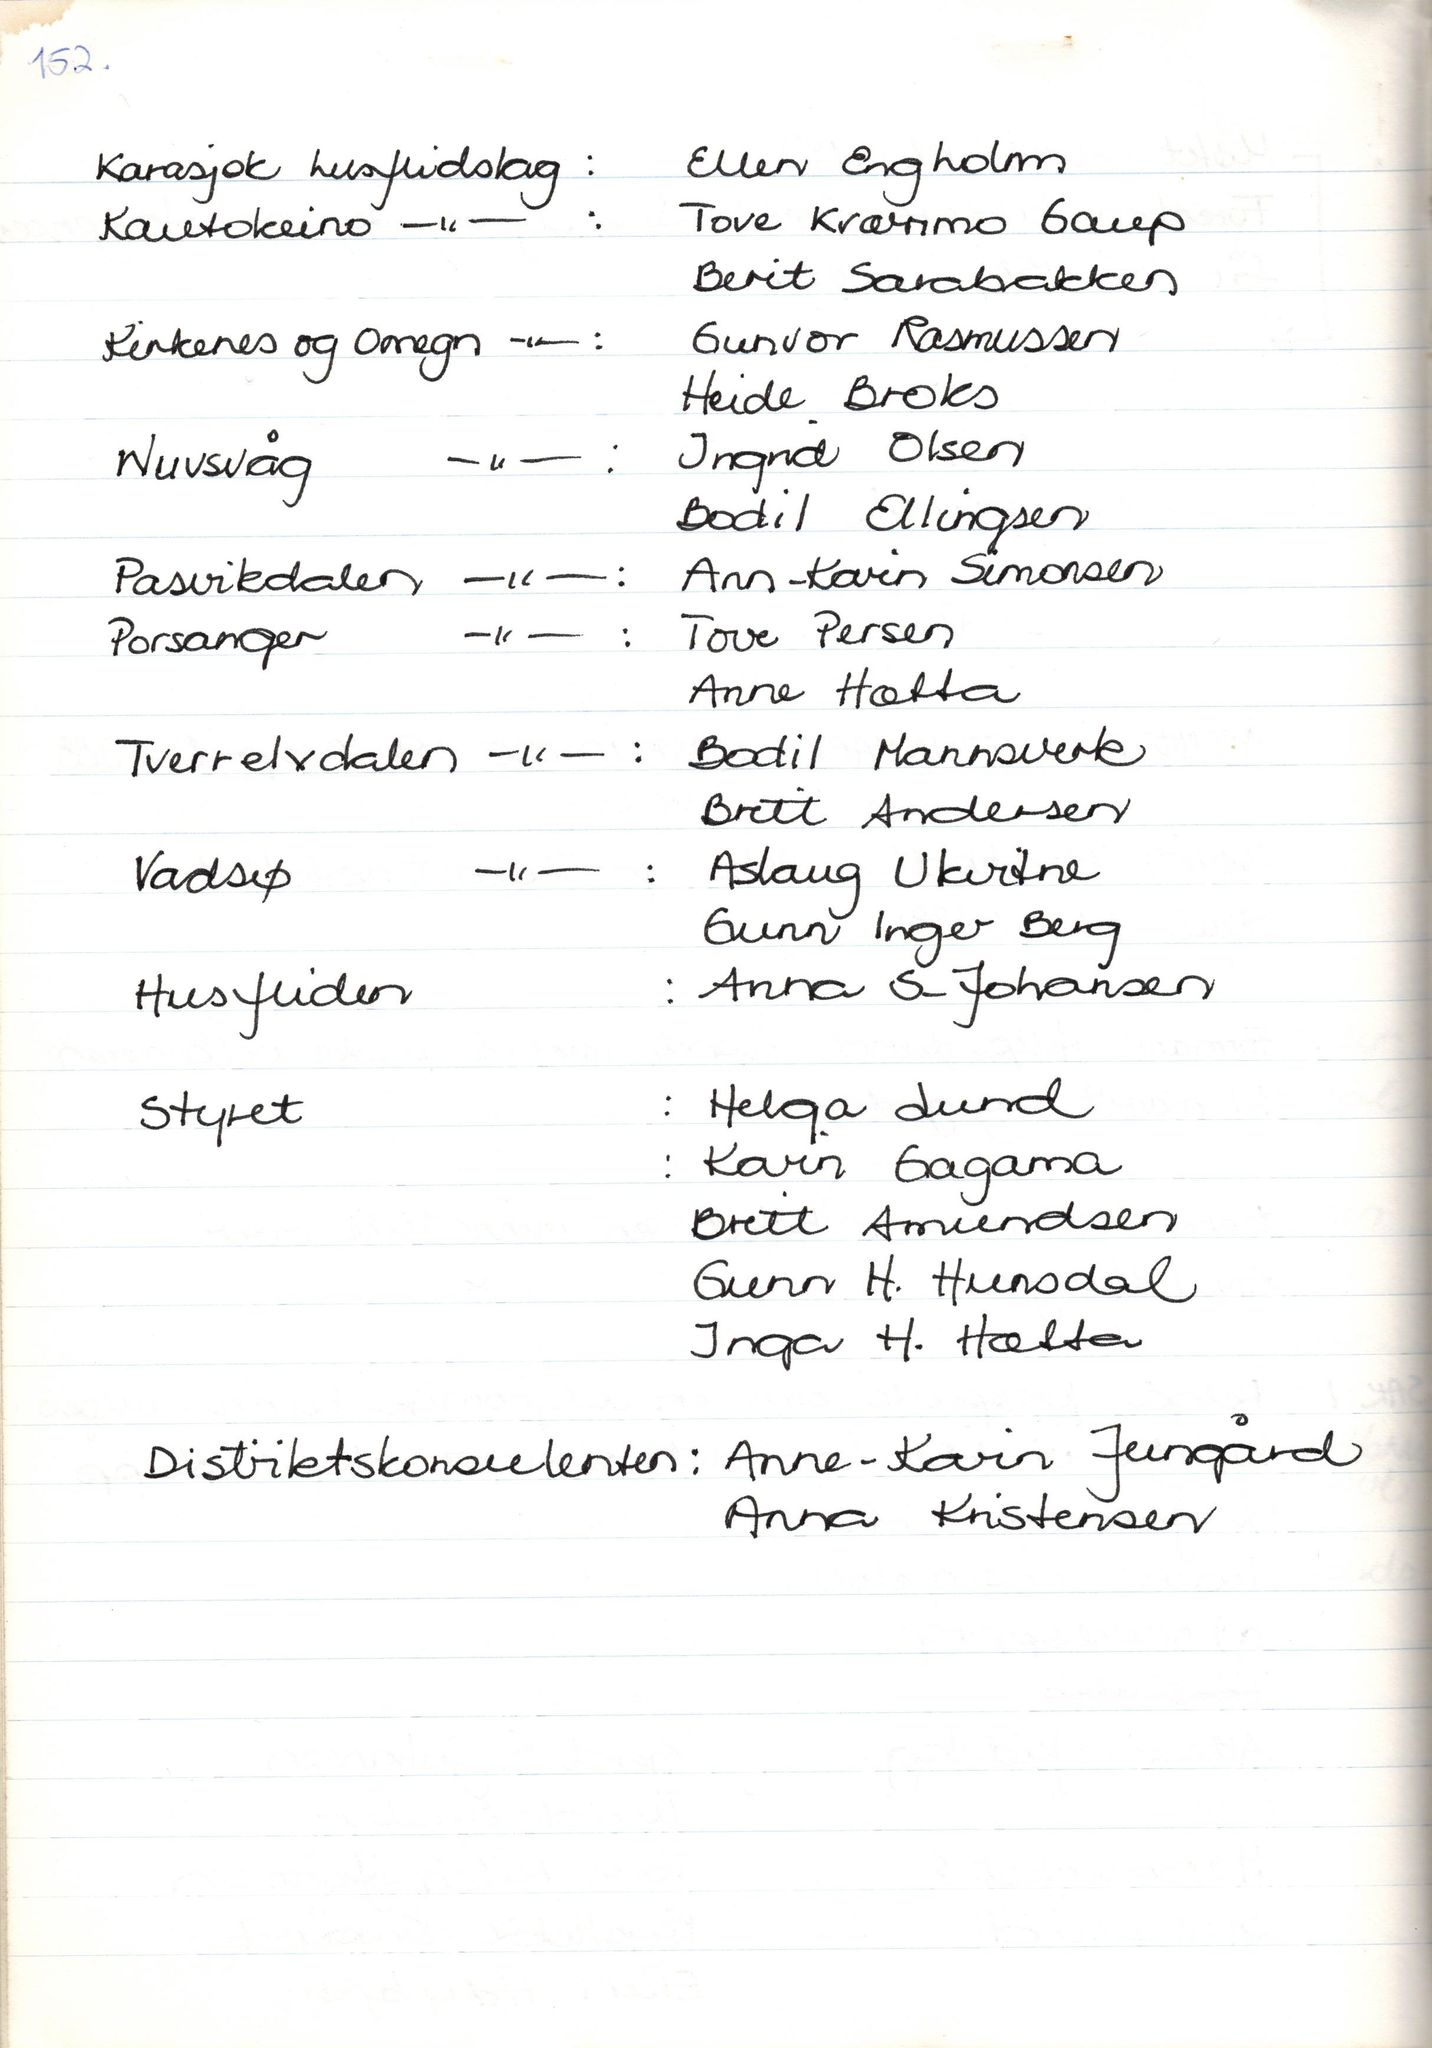 152.
Karasjok husflidslag : Ellen Engholm
Kautokeino —"— : Tove Kræmmo Gaup
Berit Sarabakken
Kirkenes og Omegn —"— : Gunvor Rasmussen
Heide Broks
Nuvsvåg —"— : Ingrid Olsen
Bodil Ellingsen
Pasvikdalen —"— : Ann-Karin Simonsen
Porsanger —"— : Tove Persen
Anne Hætta
Tverrelvdalen —"— : Bodil Mannsverk
Britt Andersen
Vadsø —"— : Aslaug Ukvitne
Gunn Inger Berg
Husfliden : Anna S Johansen
Styret : Helga Lund
: Karin Gagama
Britt Amundsen
Gunn H. Hunsdal
Inga H. Hætta
Distriktskonsulenten : Anne-Karin Jungård
Anna Kristensen